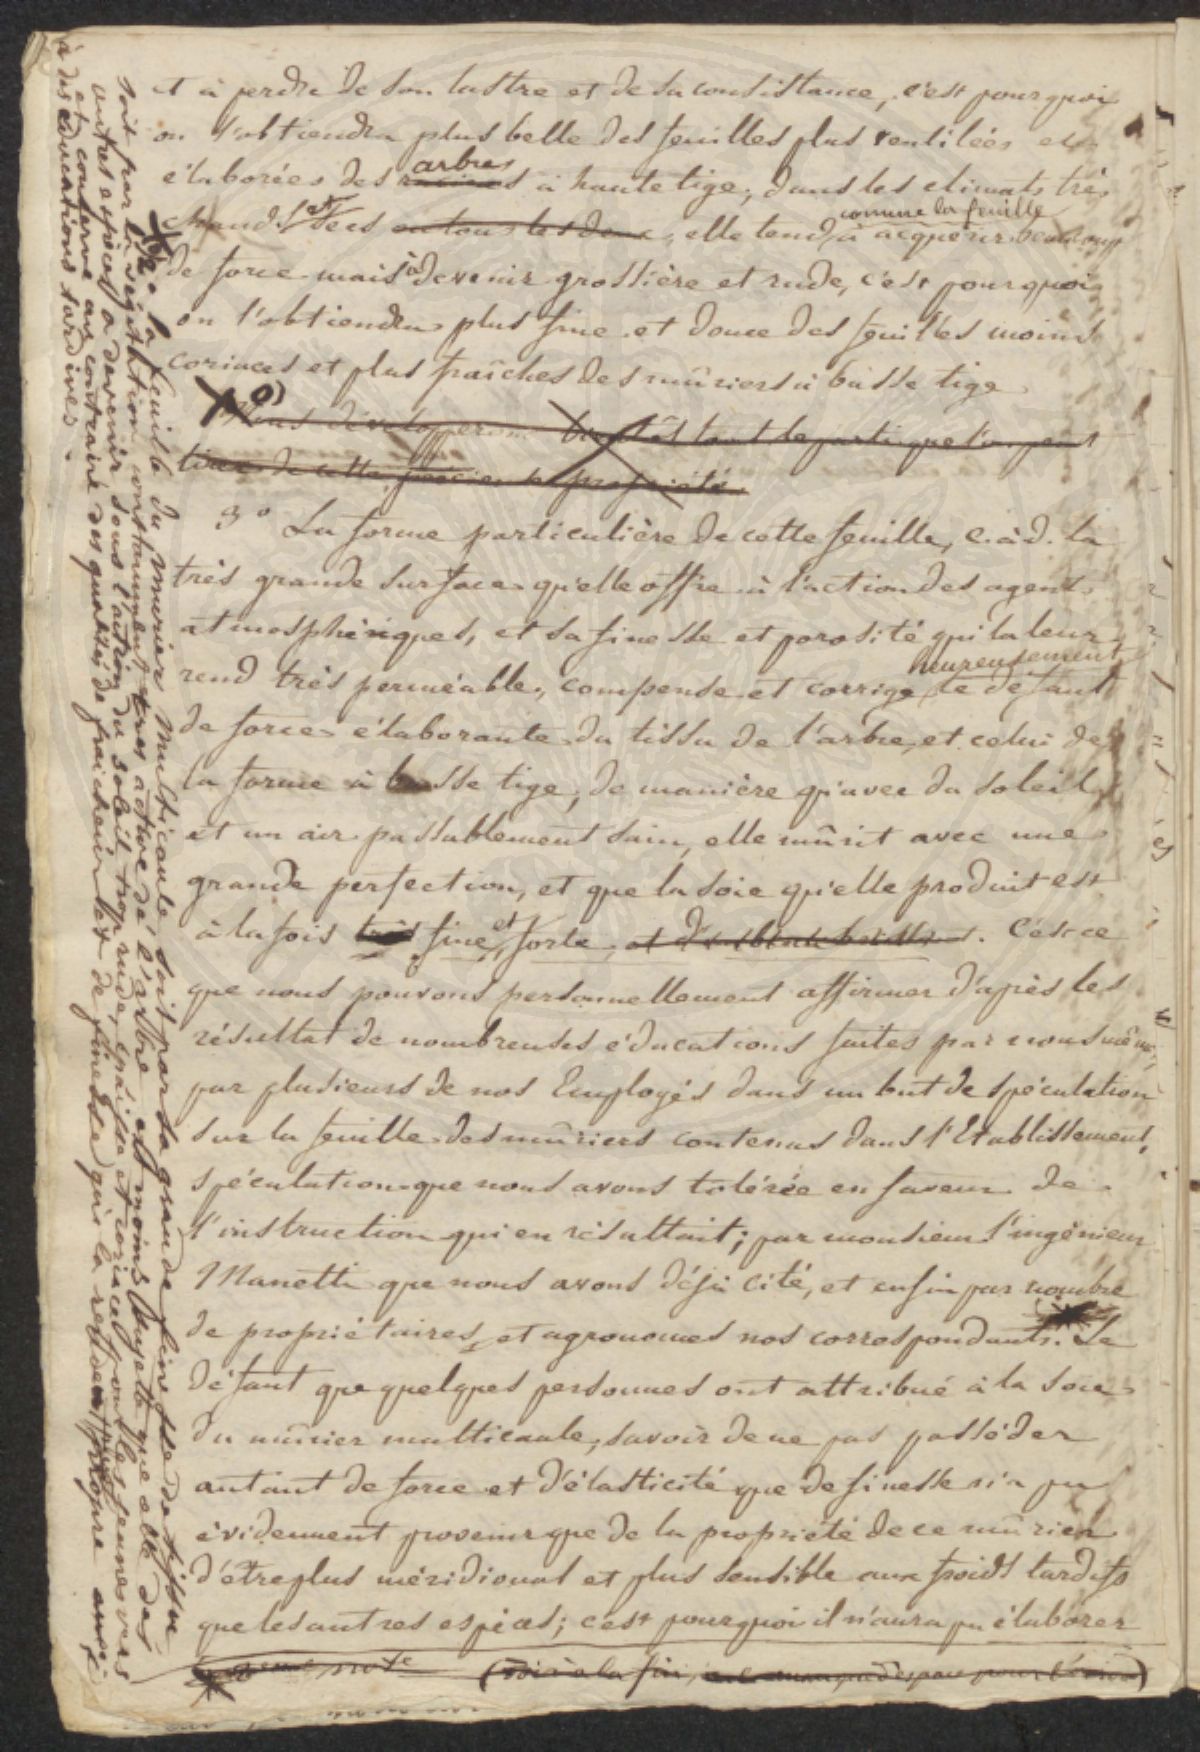 et à perdre de son lustre et de sa consistance, c'est pourquoi
on l'obtiendra plus belle des feuilles plus ventilées et
élaborées des arbres à haute tige; dans les climats très
chauds et secs en tous les deux, elle tend, comme la feuille à acquérir beaucoup
de force mais à devenir grossière et rude, c'est pourquoi
on l'obtiendra plus fine et douce des feuilles moins
coriaces et plus fraîches des mûriers à basse tige
Nous développerons bientôt tout le parti que l'on peut
tirer de cette propriété.
3° La forme particulière de cette feuille, c.à.d. la
très grande surface qu'elle offre à l'action des agents
atmosphériques, et sa finesse et porosité qui la leur
rend très perméable, compense et corrige heureusement le défaut
de force élaborante du tissu de l'arbre, et celui de
la forme à basse tige, de manière qu'avec du soleil
et un air passablement sain, elle mûrit avec une
grande perfection, et que la soie qu'elle produit est
à la fois très fine et forte. C'est ce
que nous pouvons personnellement affirmer d'après les
résultat de nombreuses éducations faites par nous même,
par plusieurs de nos Employés dans un but de spéculation
sur la feuille des mûriers contenus dans l'Etablissement,
spéculation que nous avons tolérée en faveur de
l'instruction qui en résultait; par monsieur l'ingénieur
Manetti que nous avons déjà cité, et enfin par nombre
de propriétaires et agronomes nos correspondants. Le
défaut que quelques personnes ont attribué à la soie
du mûrier multicaule, savoir de ne pas posséder
autant de force et d'élasticité que de finesse n'a pu
évidemment provenir que de la propriété de ce mûrier
d'être plus méridional et plus sensible aux froids tardifs
que les autres espèces; c'est pourquoi il n'aura pu élaborer
note (voir à la fin, manque d'espace pour
2° la feuille du murier Multicaule soit par sa grande finesse de tissu
soit par la végétation constamment très active de l'arbre est moins sujette que celle des
autres espèces à devenir sous l'action du soleil trop rude, épaisse et coriace pour les jeunes vers
et conserve au contraire des qualités de fraicheur et de finesse qui la rendent propre aussi
à des éducations tardives.